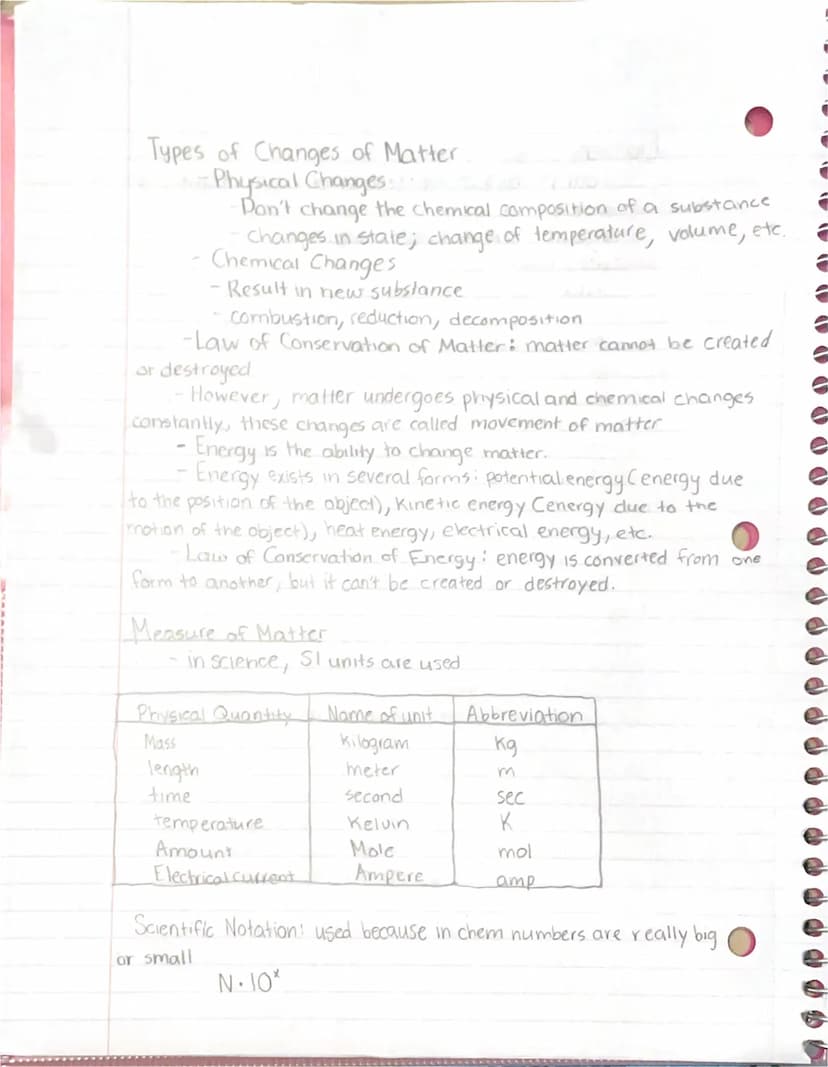 Types of Changes of Matter
- Physical Changes
- Don't change the chemical composition of a substance
- Changes in state; change of temperature, volume, etc.
- Chemical Changes
- Result in new substance
- combustion, reduction, decomposition
- Law of Conservation of Matter: matter cannot be created
or destroyed
- However, matter undergoes physical and chemical changes
constantly, these changes are called movement of matter
- Energy is the ability to change matter.
- Energy exists in several forms: potential energy (energy due
to the position of the object), Kinetic energy (energy due to the
motion of the object), heat energy, electrical energy, etc.
- Law of Conservation of Energy: energy is converted from one
form to another, but it can't be created or destroyed.
Measure of Matter
- in science, SI units are used
Physical Quantity Name of unit Abbreviation
Mass Kilogram Kg
length meter m
time second sec
temperature Kelvin K
Amount Mole mol
Electrical current Ampere amp
Scientific Notation: used because in chem numbers are really big
or small
N · 10ˣ